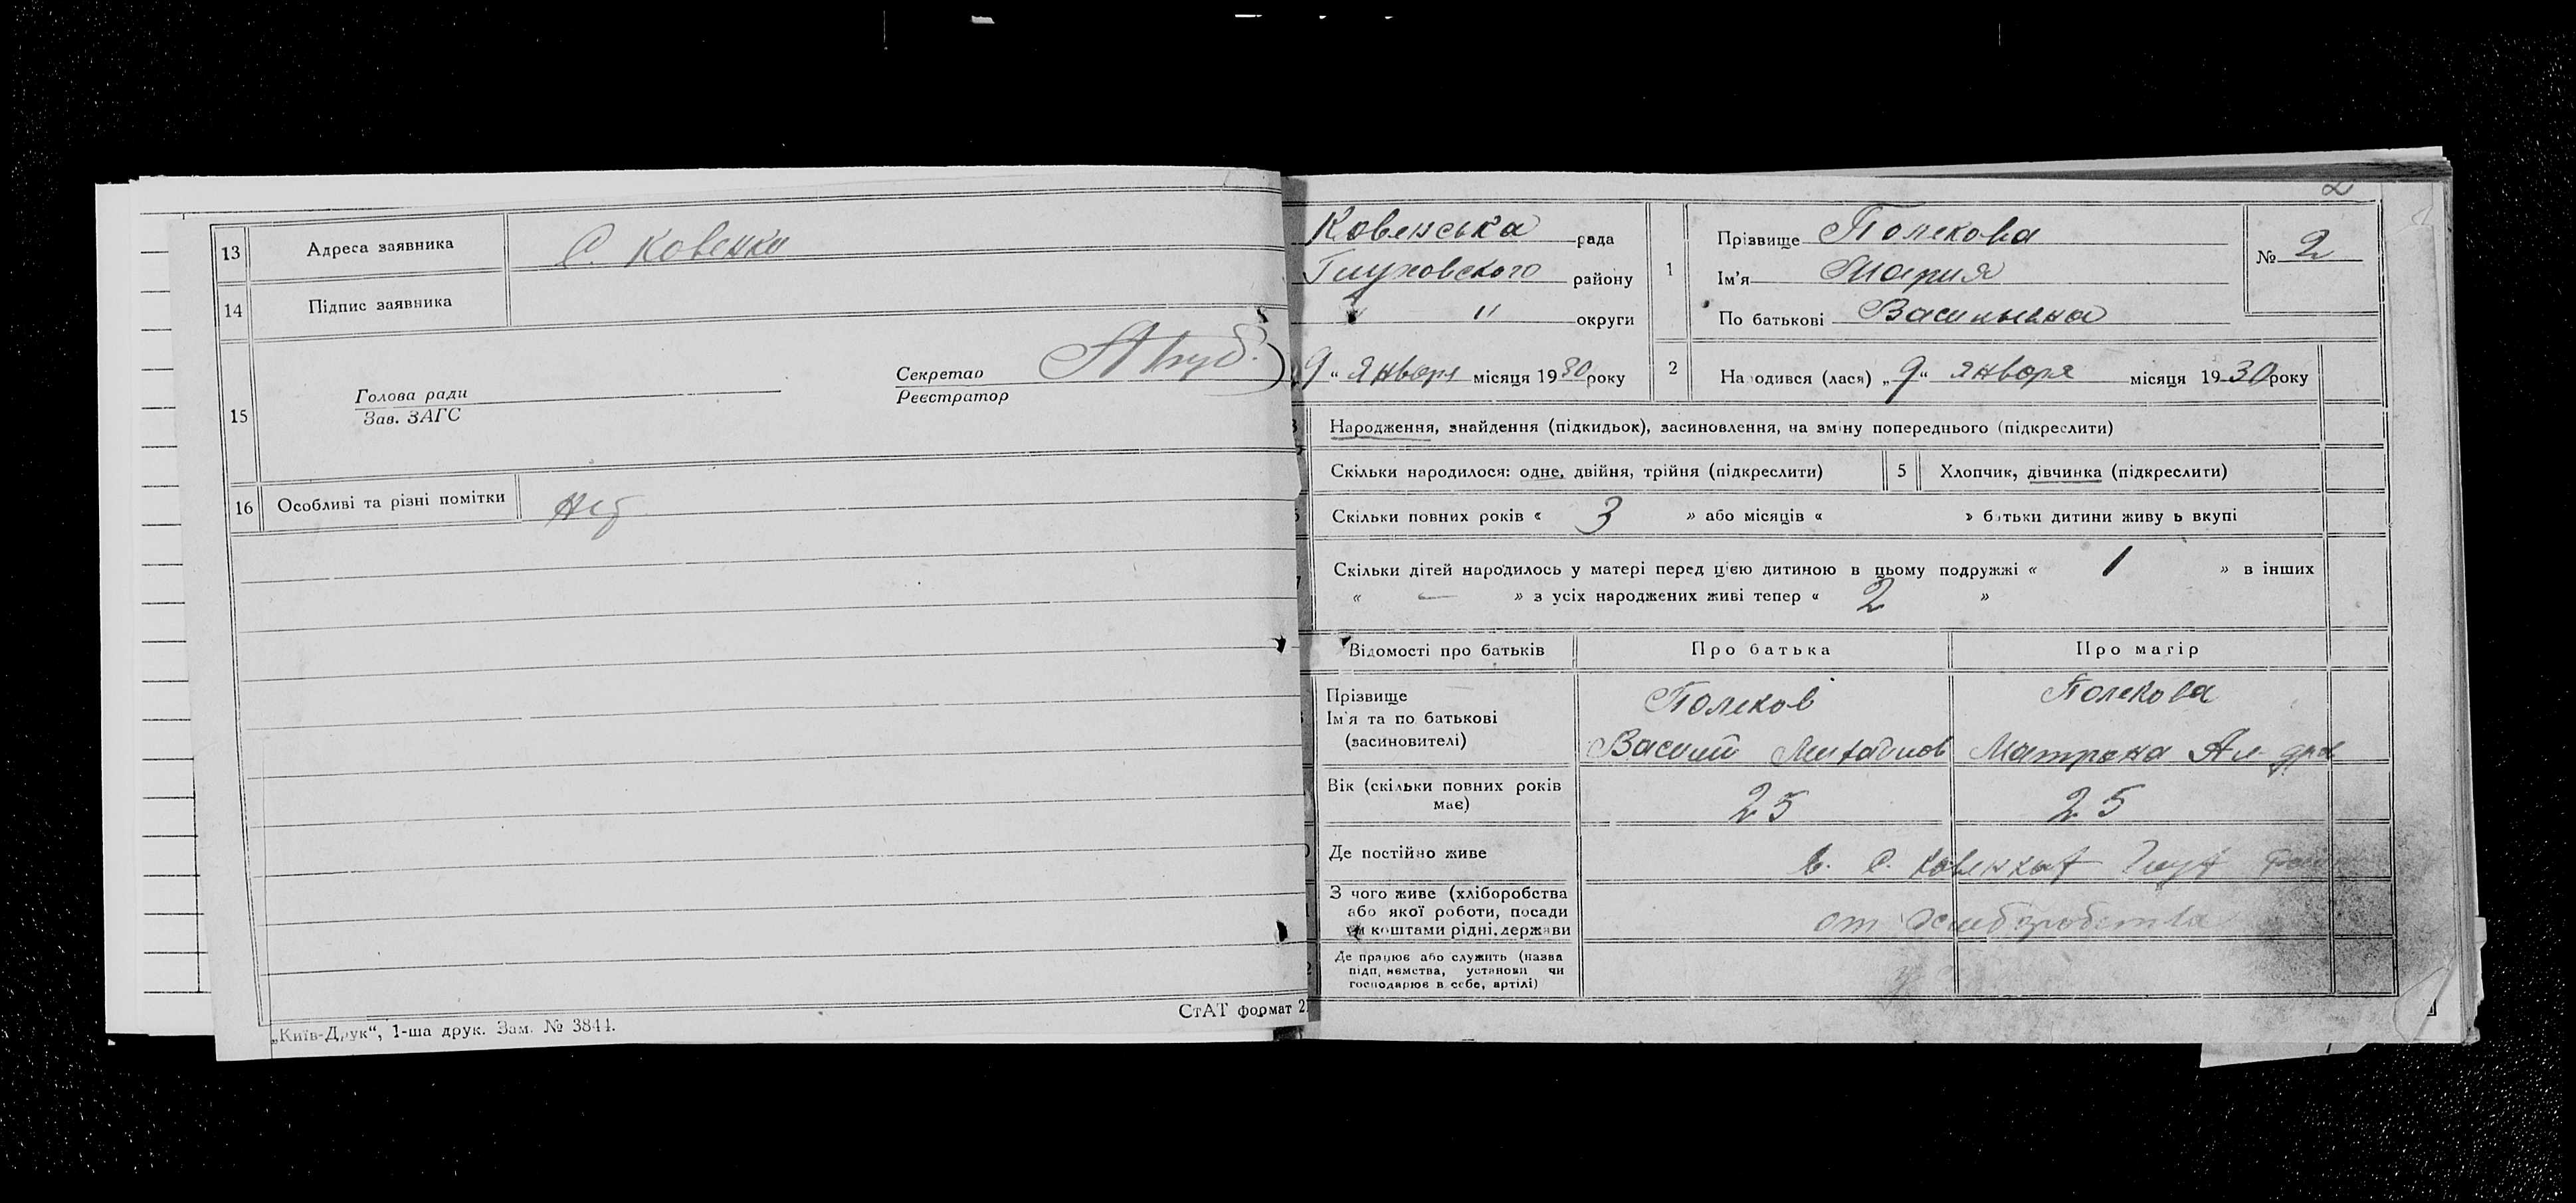 13 Адреса заявника С. Ковенка
14 Підпис заявника
15 Голова ради
Зав. ЗАГС
Секретар
Реєстратор
16 Особливі та різні помітки
„Київ-Друк“, 1-ша друк. Зам. № 3844.
СтАТ формат 2
2
Ковенська рада
Глуховского району
" округи
9 “ Января місяця 1930 року
1 Прізвище Полекова
Ім'я Мария
По батькові Васильевна
№ 2
2 Народився (лася) „ 9 “ Января місяця 1930 року
Народження, знайдення (підкидьок), засиновлення, на зміну попереднього (підкреслити)
Скільки народилося: одне, двійня, трійня (підкреслити) 5 Хлопчик, дівчинка (підкреслити)
Скільки повних років « 3 » або місяців « » батьки дитини живуть вкупі
Скільки дітей народилось у матері перед цією дитиною в цьому подружжі « 1 » в інших
« — » з усіх народжених живі тепер « 2 »
Відомості про батьків Про батька Про матір
Прізвище
Ім'я та по батькові
(засиновителі)
Полеков
Василий Михайлов
Полекова
Матрона Ал-дров
Вік (скільки повних років
має)
25 25
Де постійно живе в. с. Ковенках Глух
З чого живе (хліборобства
або якої роботи, посади
чи коштами рідні, держави
от хлеборобства
Де працює або служить (назва
підприємства, установи чи
господарює в себе, артілі)